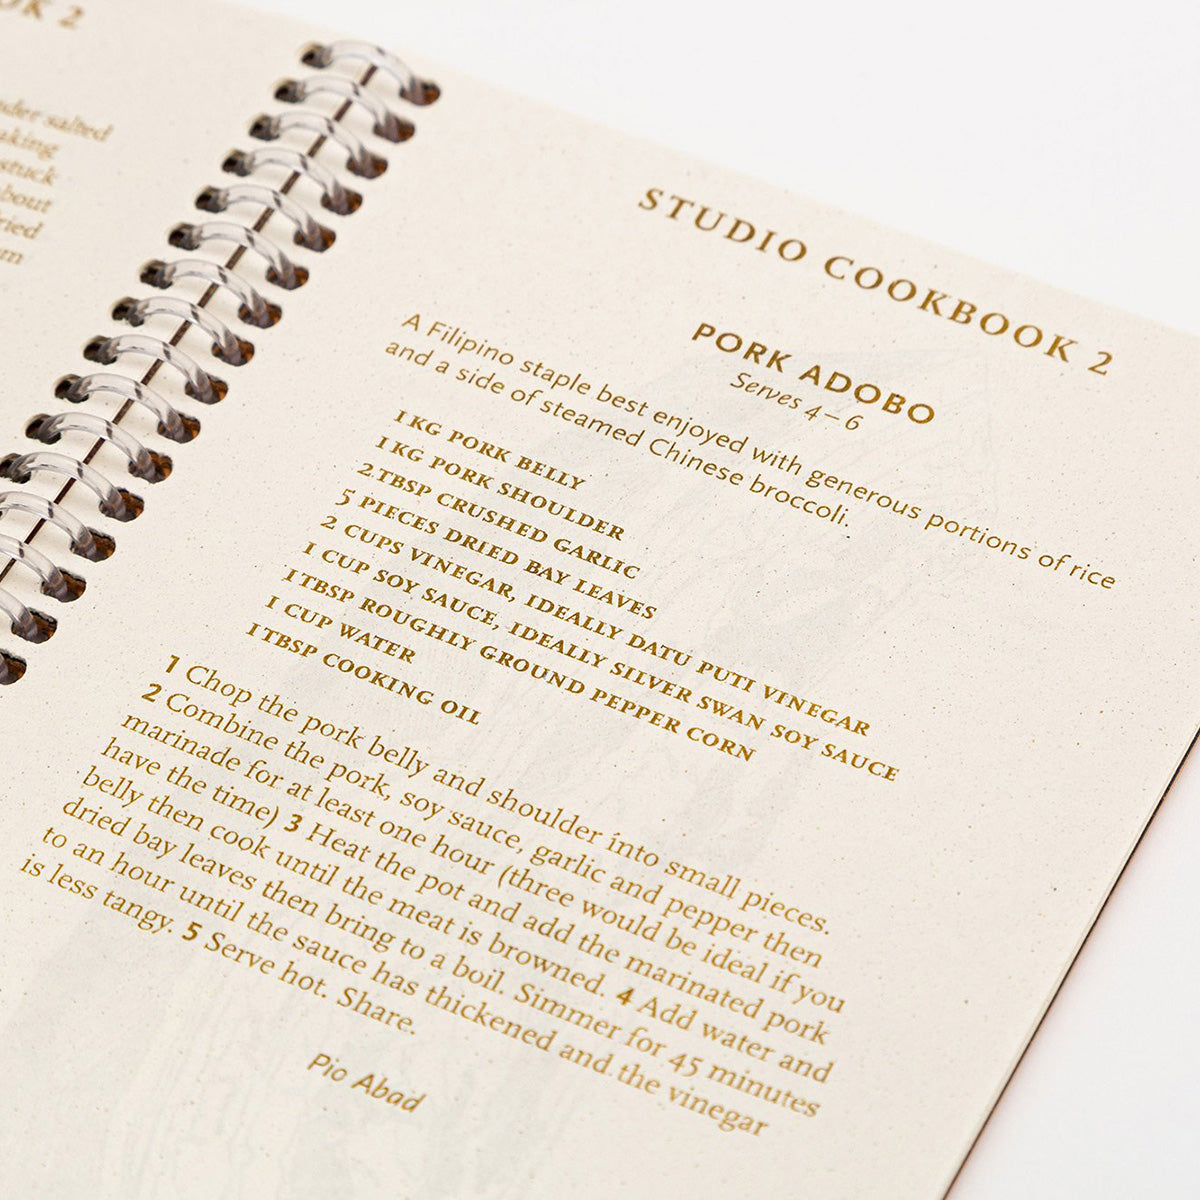 OK 2
der salted
aking
stuck
bout
ried
m
STUDIO COOKBOOK 2
PORK ADOBO
Serves 4–6
A Filipino staple best enjoyed with generous portions of rice
and a side of steamed Chinese broccoli.
1 KG PORK BELLY
1 KG PORK SHOULDER
2 TBSP CRUSHED GARLIC
5 PIECES DRIED BAY LEAVES
2 CUPS VINEGAR, IDEALLY DATU PUTI VINEGAR
1 CUP SOY SAUCE, IDEALLY SILVER SWAN SOY SAUCE
1 TBSP ROUGHLY GROUND PEPPER CORN
1 CUP WATER
1 TBSP COOKING OIL
1 Chop the pork belly and shoulder into small pieces.
2 Combine the pork, soy sauce, garlic and pepper then
marinade for at least one hour (three would be ideal if you
have the time) 3 Heat the pot and add the marinated pork
belly then cook until the meat is browned. 4 Add water and
dried bay leaves then bring to a boil. Simmer for 45 minutes
to an hour until the sauce has thickened and the vinegar
is less tangy. 5 Serve hot. Share.
Pio Abad